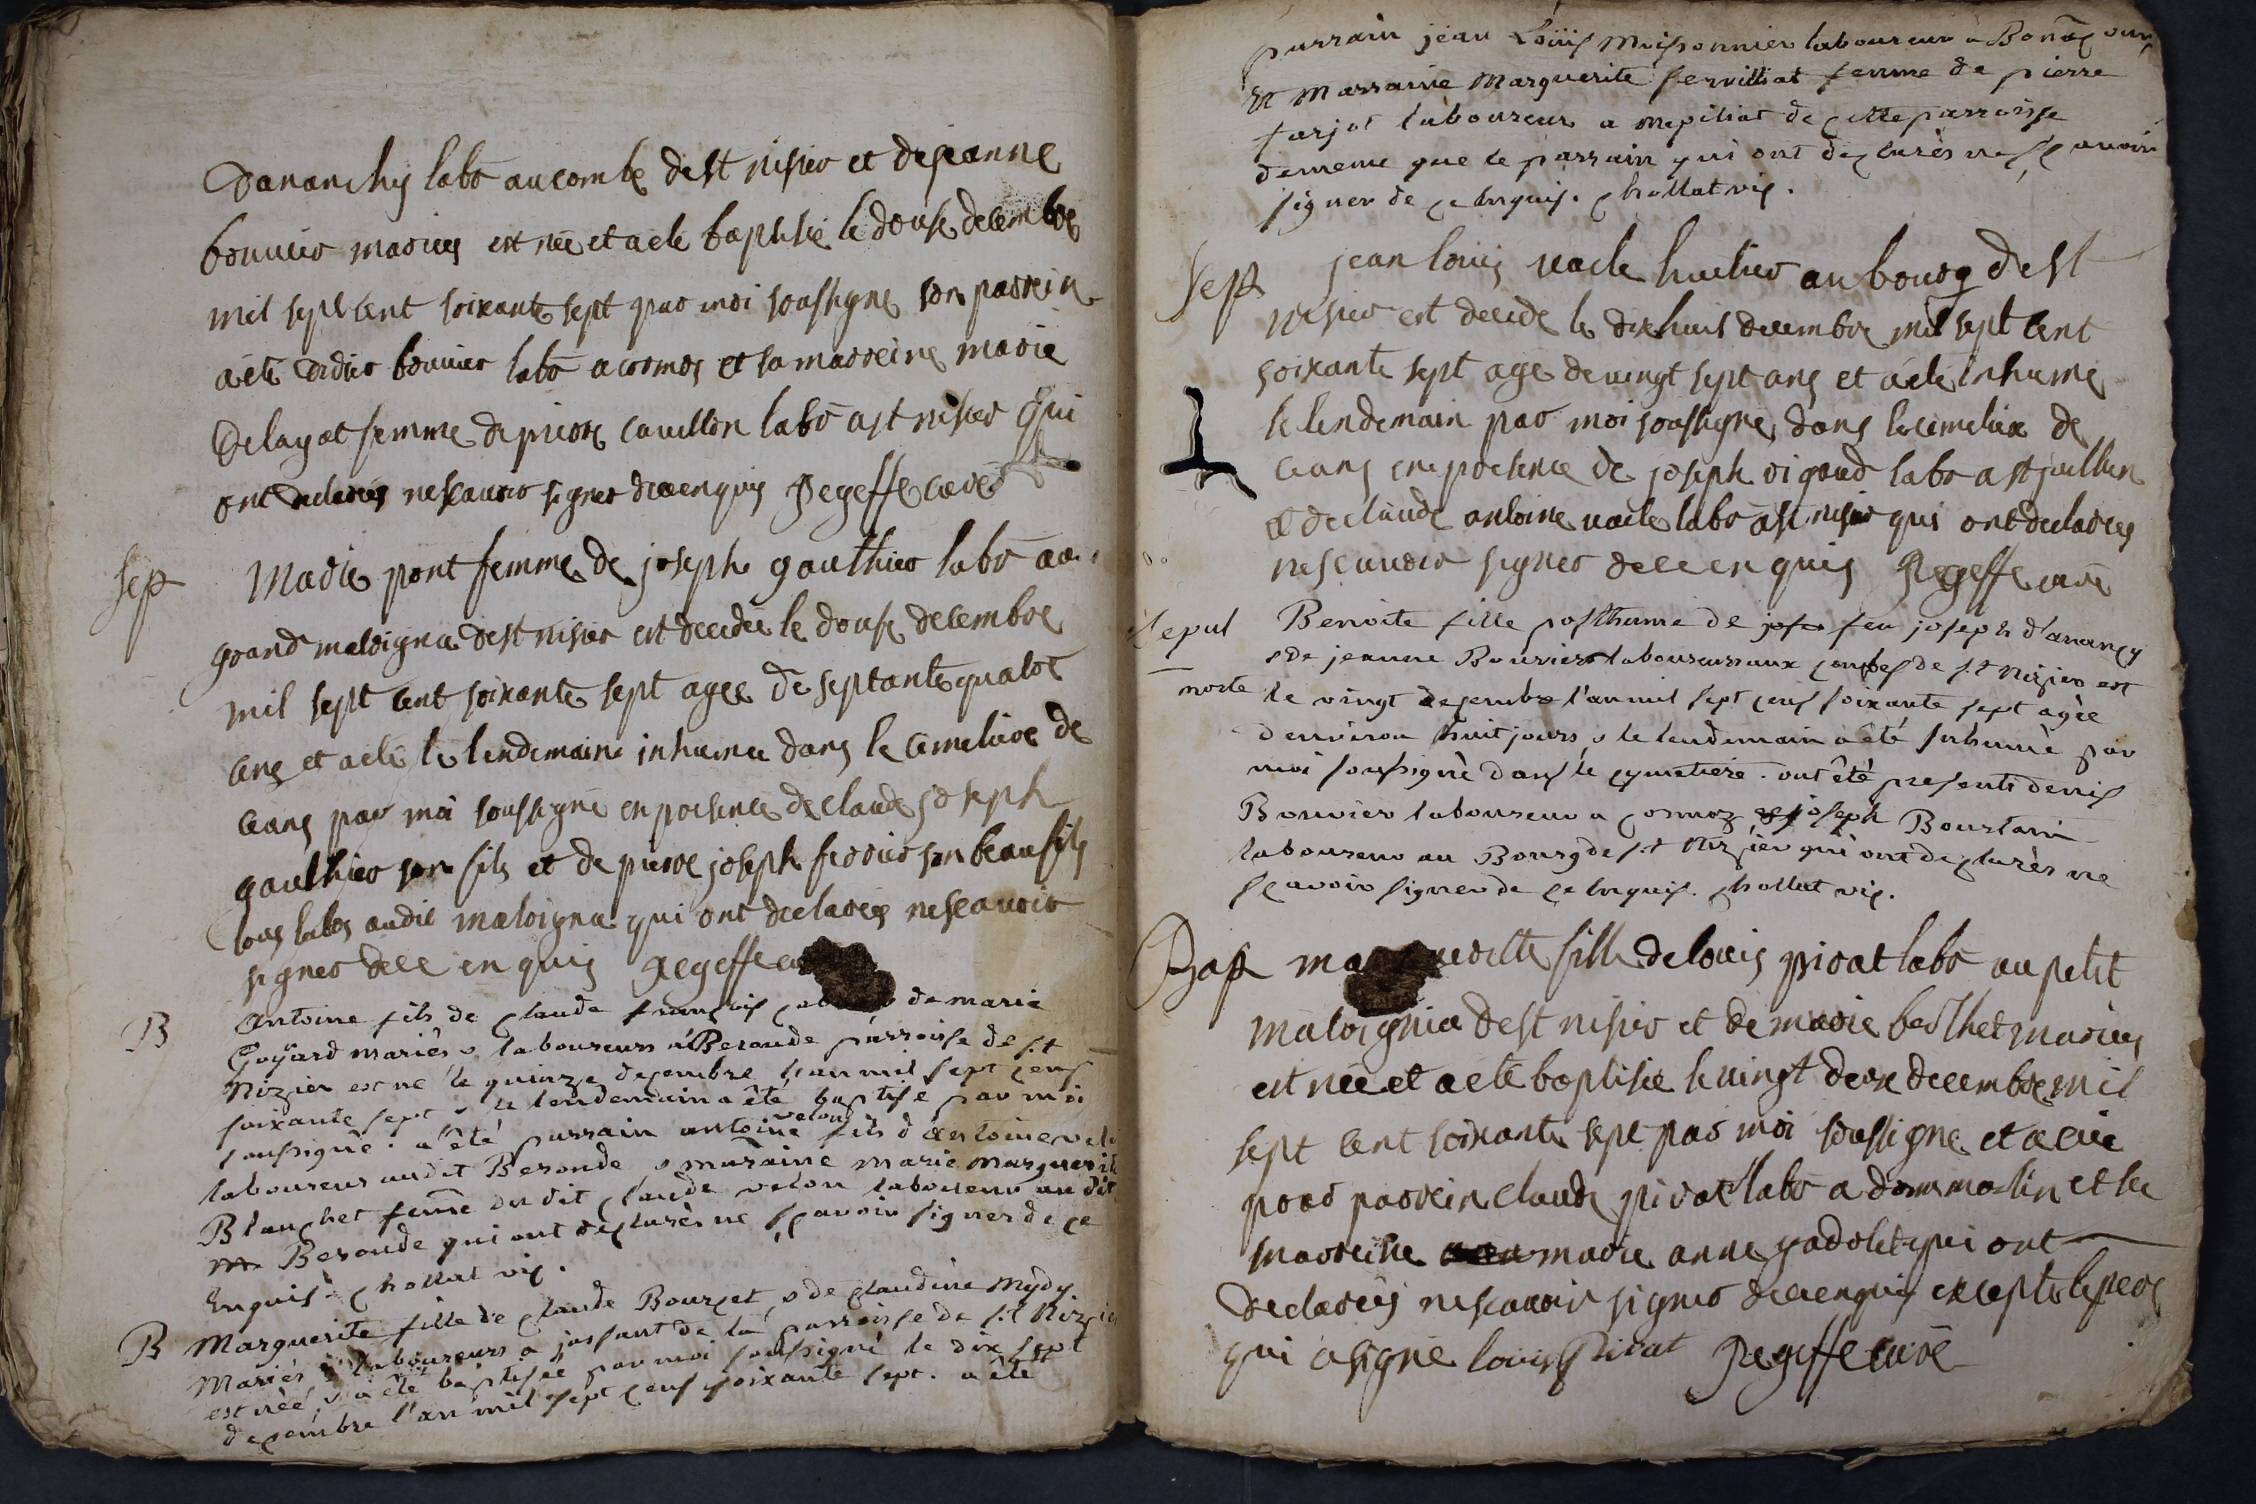 Dananchy labo au combe de st nisier et de jeanne
bouvier mariés est née et a été baptisée le douse decembre
mil sept cent soixante sept par moi soussigné son parrein
a été didier bouvier labo a cormos et sa marreine marie
Delayat femme de pierre cavillon labo a st nisier qui
ont declarés ne scavoir signer de ce enquis Pegeffe curé
sep Marie pont femme de joseph gauthier labo au
grand malvigna de st nisier est decedée le douse decembre
mil sept cent soixante sept agee de septante quatre
ans et a été le lendemain inhumée dans le cimetiere de
ceans par moi soussigné en presence de claude joseph
gauthier son fils et de pierre joseph ferrier son beau fils
tous labos au dit malvigna qui ont declarés ne scavoir
signer de ce enquis Pegeffe
B Antoine fils de claude françois de marie
Goÿard mariés & laboureurs à Beronde parroisse de s.t
Nizier est né le quinze decembre l'an mil sept cens
soixante sept & le lendemain a été baptisé par moi
soussigné. a été parrain antoine velon fils d'antoine
laboureur audit Beronde & maraine marie marguerite
Blanchet feme du dit claude velon laboureur au dit
Beronde qui ont declarés ne sçavoir signer de ce
Enquis. chollat vic.
B Marguerite fille de claude Bourcet & de claudine mydy
Mariés & laboureurs a jassant de la parroisse de s.t Nizier
est née & a été baptisée par moi soussigné le dix sept
decembre l'an mil sept cens soixante sept. a été
parrain jean Loüis Moissonnier laboureur a
Et Marraine Marguerite servilliat femme de pierre
farjot laboureur a mepiliat de cette parroisse
de meme que le parrain qui ont declarés ne sçavoir
signer de ce Enquis. chollat vic.
sep jean louis vacle huilier au bourg de st
nisier est decede le dix huit decembre mil sept cent
soixante sept age de vingt sept ans et a été inhumé
le lendemain par moi soussigné dans le cimetiere de
ceans en presence de joseph rigaud labo a st jullien
et de claude antoine vacle labo a st nisier qui ont declarés
ne scavoir signer de ce enquis Pegeffe curé
sepul Benoite fille posthume de feu joseph d'anancy
& de jeanne Bouvier laboureurs aux combes de s.t Nizier est
morte le vingt decembre l'an mil sept cens soixante sept agée
d'environ huit jours & le lendemain a été inhumée par
moi soussigné dans le cymetiere. ont été presents denis
Bouvier laboureur a cormoz & joseph Bourtarin
laboureur au Bourg de s.t Nizier qui ont declarés ne
sçavoir signer de ce Enquis. chollat vic.
Bap fille de louis pirat labo au petit
malvignia de st nisier et de marie berthet mariés
est née et a été baptisée le vingt deux decembre mil
sept cent soixante sept par moi soussigné et a eu
pour parrein claude pirat labo a dommartin et
marreine marie anne gadolet qui ont
declarés ne scavoir signer de ce enquis excepté le pere
qui a signé louis Pirat Pegeffe curé